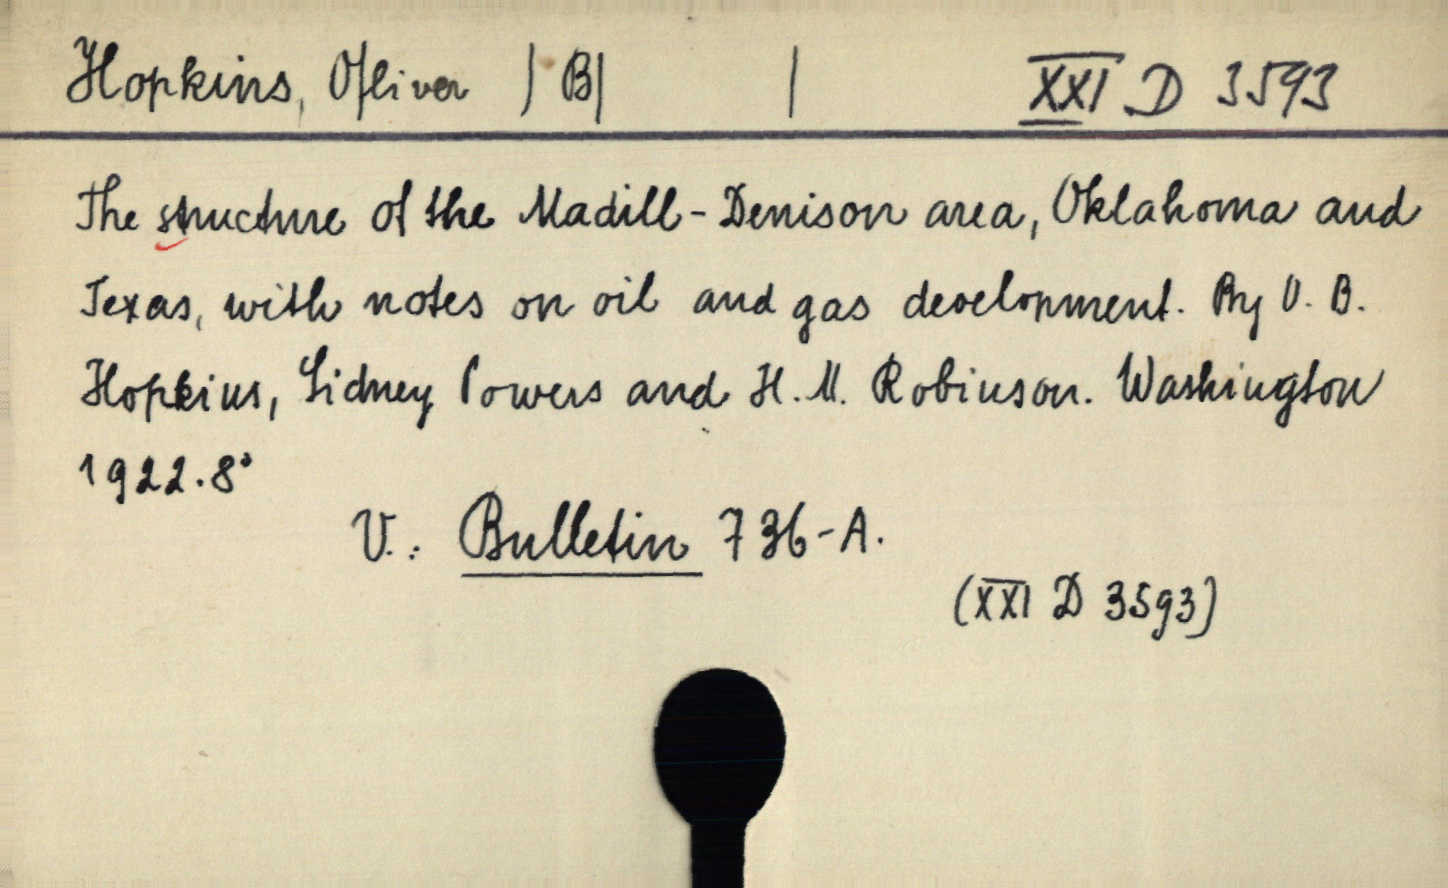 Hopkins, O|liver | B| | XXI D 3593
The structure of the Madill-Denison area, Oklahoma and
Texas, with notes on oil and gas development. By O. B.
Hopkins, Sidney Powers and H. M. Robinson. Washington
1922. 8°
V.: Bulletin 736-A.
(XXI D 3593)